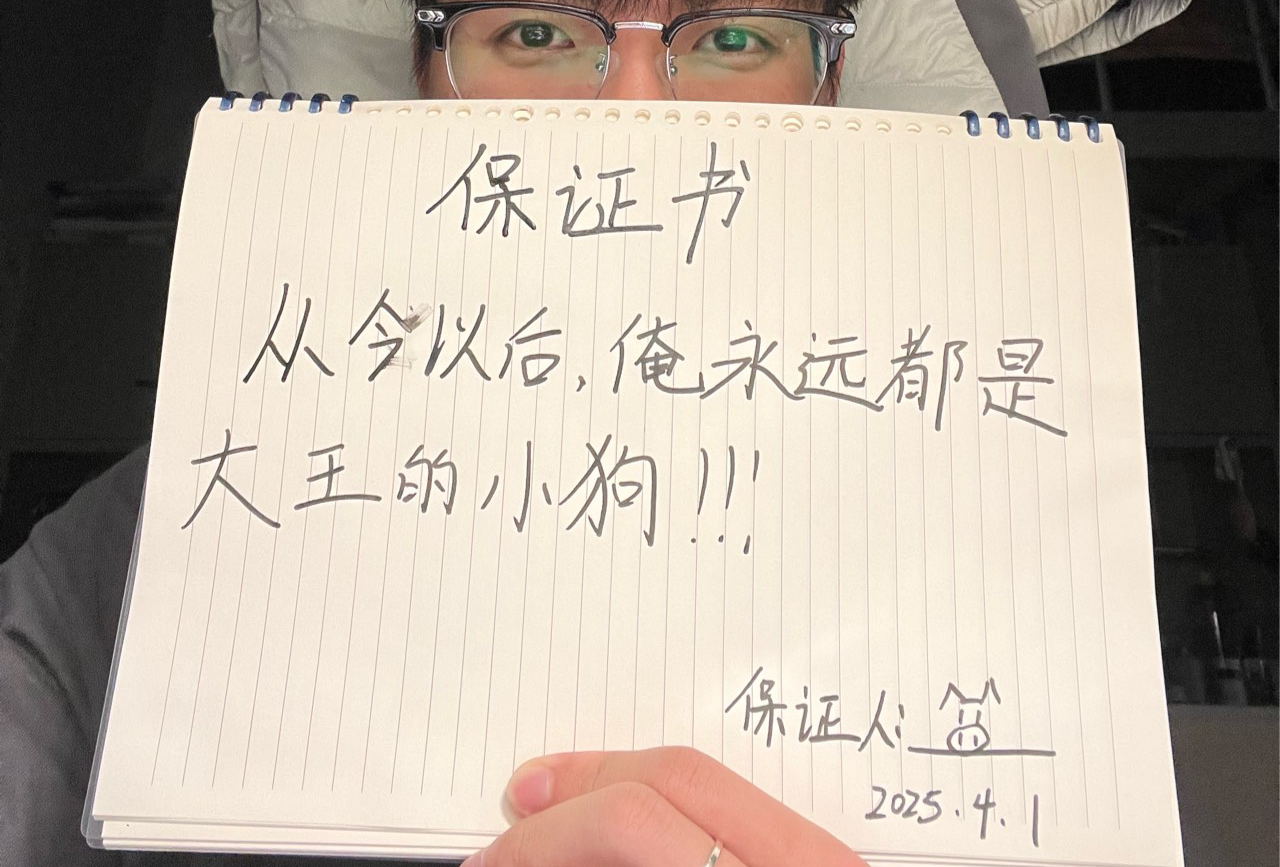 保证书
从今以后,俺永远都是
大王的小狗!!!
保证人:
2025.4.1